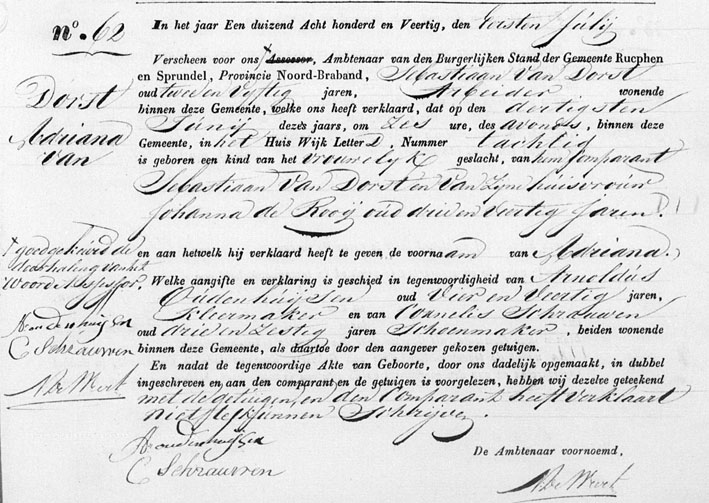 nº. 62
Dorst
Adriana
van
In het jaar Een duizend Acht honderd en Veertig, den Eersten Julij
Verscheen voor ons † Assessor, Ambtenaar van den Burgerlijken Stand der Gemeente Rucphen
en Sprundel, Provincie Noord-Braband, Sebastiaan Van Dorst
oud twee en Vyftig jaren, Arbeider wonende
binnen deze Gemeente, welke ons heeft verklaard, dat op den dertigsten
Junij dezes jaars, om Zes ure, des avonds, binnen deze
Gemeente, in het Huis Wijk Letter D, Nummer tachtig
is geboren een kind van het vrouwelyk geslacht, van hem Comparant
Sebastiaan Van Dorst en Van Zyne huisvrouw
Johanna de Rooij oud drie en Veertig Jaren.
en aan hetwelk hij verklaard heeft te geven de voornaam van Adriana.
Welke aangifte en verklaring is geschied in tegenwoordigheid van Arnoldus
Oudenhuijsen oud Vier en Veertig jaren,
Kleermaker en van Cornelis Schrauwen
oud drie en Zestig jaren Schoenmaker, beiden wonende
binnen deze Gemeente, als daartoe door den aangever gekozen getuigen.
En nadat de tegenwoordige Akte van Geboorte, door ons dadelijk opgemaakt, in dubbel
ingeschreven en aan den comparant en de getuigen is voorgelezen, hebben wij dezelve geteekend
met de getuigen, en den Comparant heeft verklaart
niet te kunnen Schrijven.
A oudenhuijsen
C Schrauwen
De Ambtenaar voornoemd,
† goedgekeurd de
doorhaling van het
Woord Assessor,
A oudenhuijsen
C Schrauwen